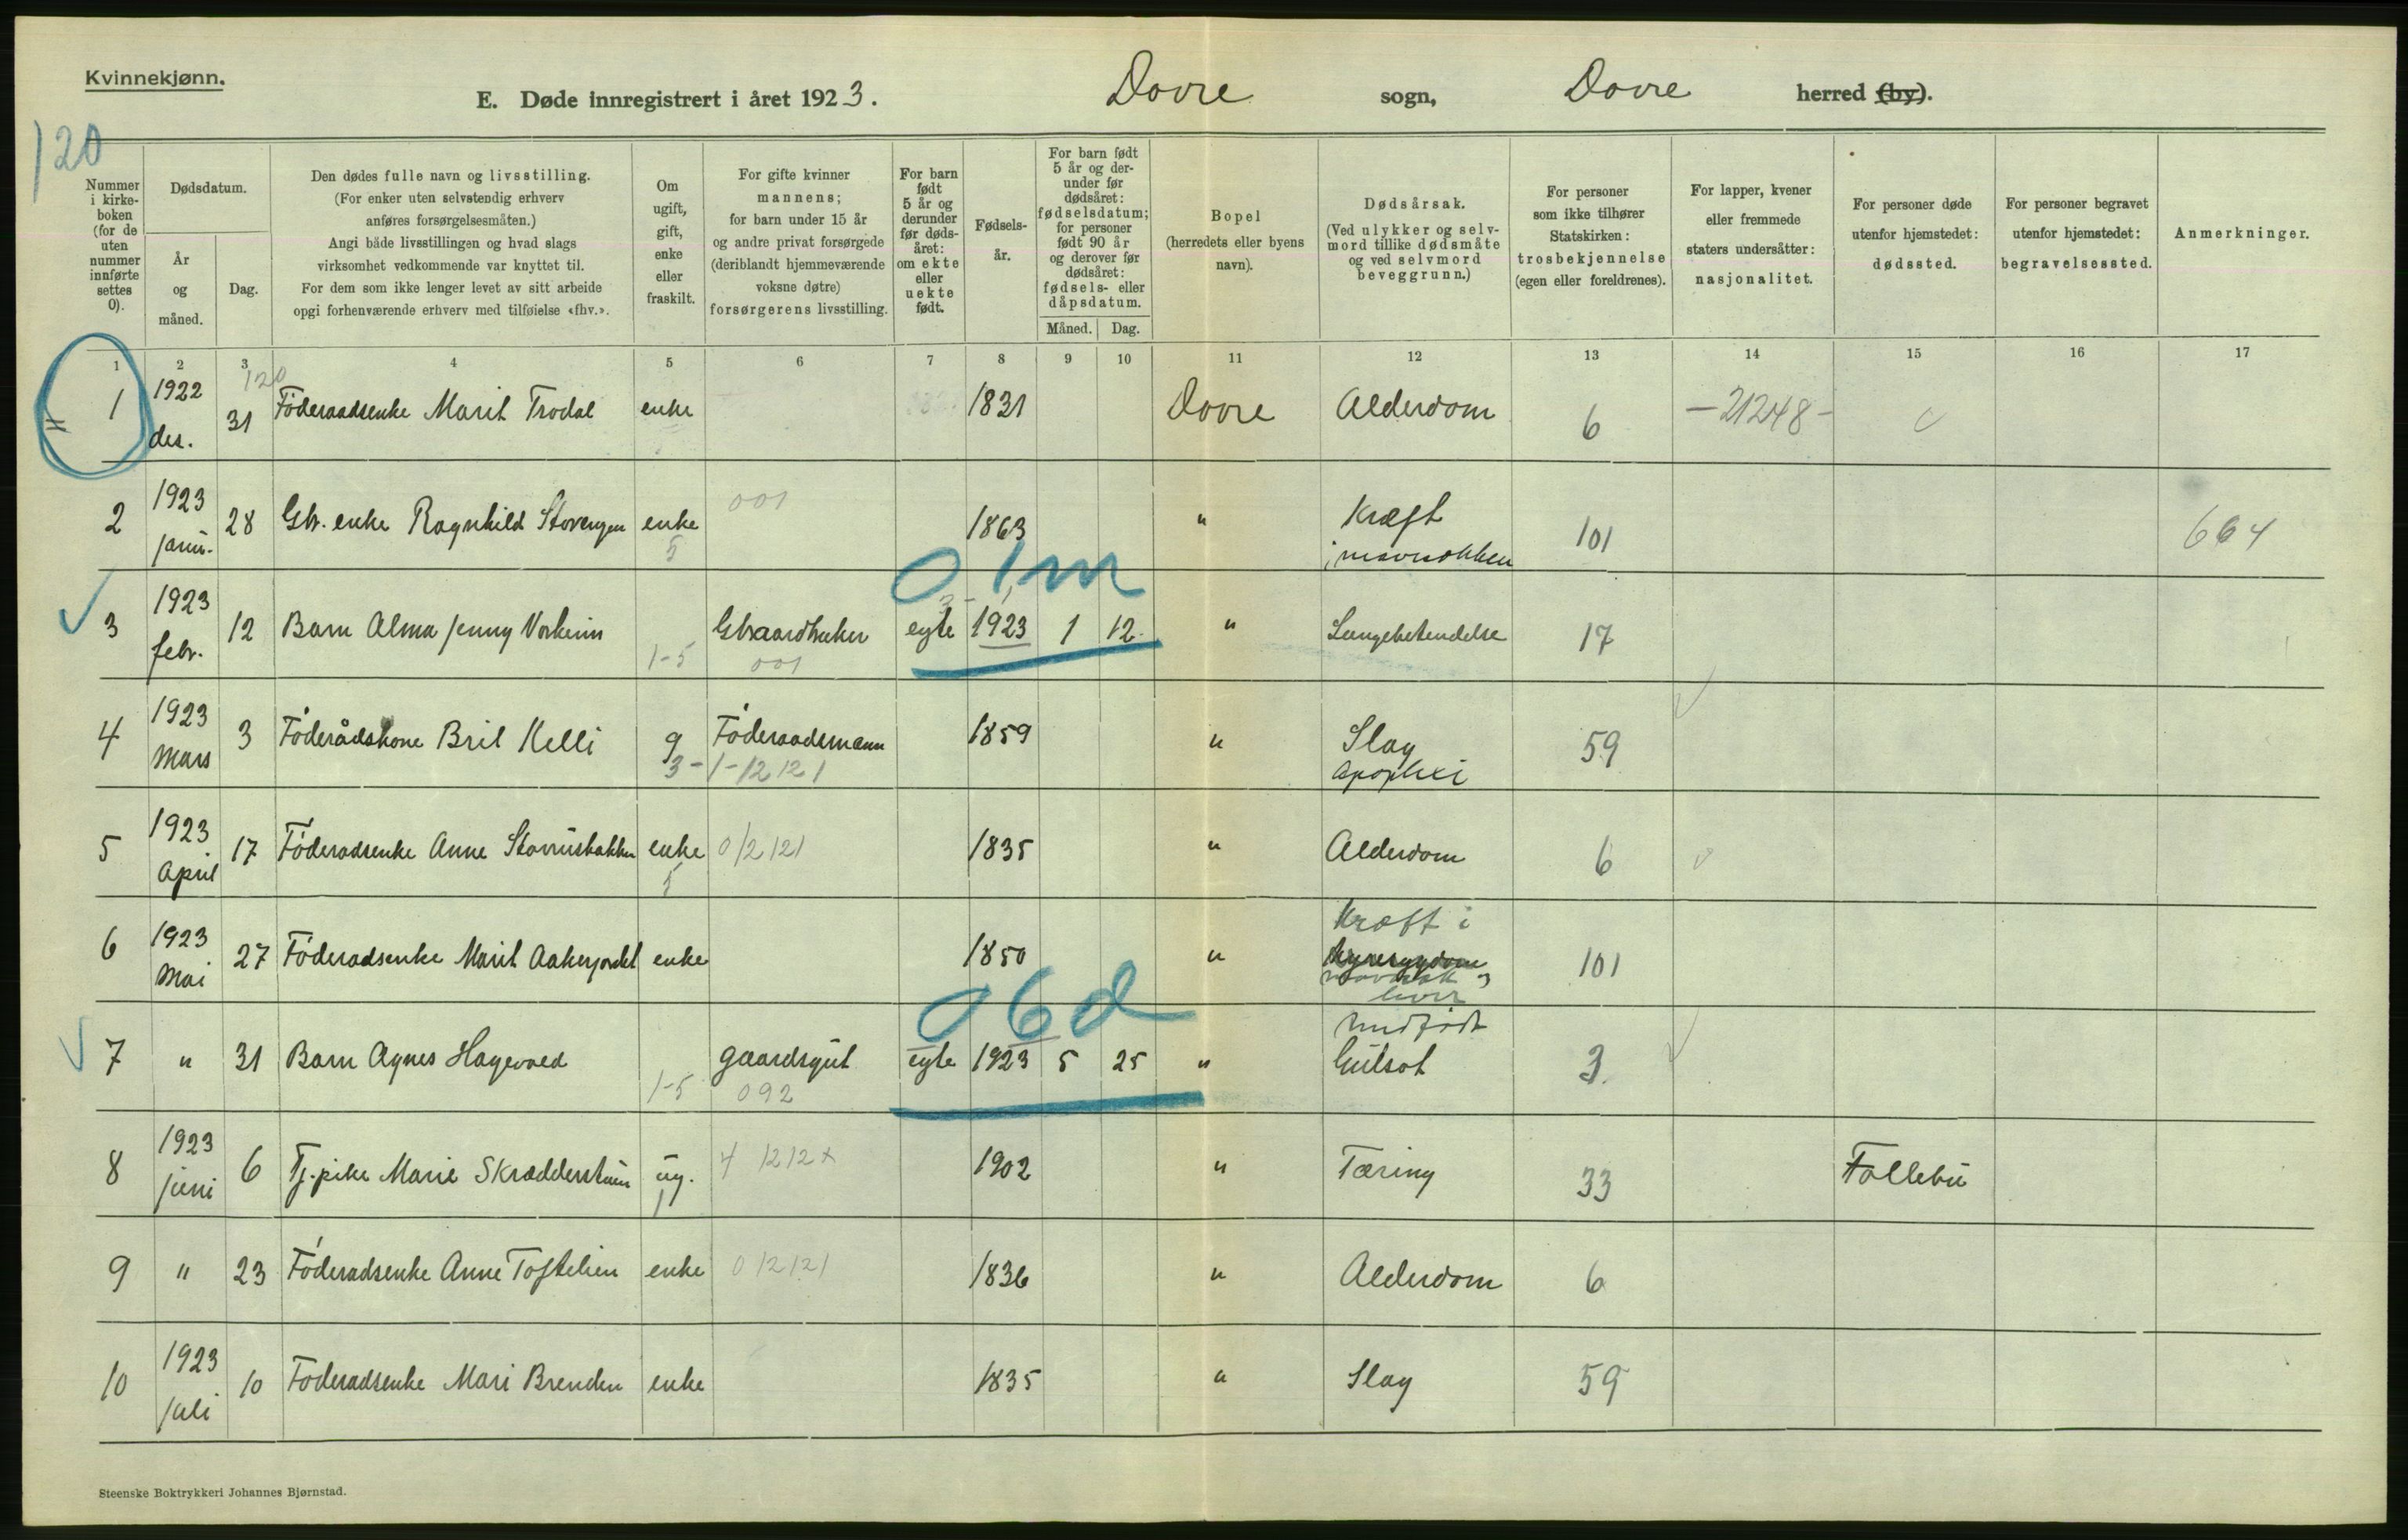 Kvinnekjønn.
E. Døde innregistrert i året 1923. Dovre sogn, Dovre herred (by).
120
Nummer i kirke-boken (for de uten nummer innførte settes 0).
Dødsdatum.
År og måned.
Dag.
Den dødes fulle navn og livsstilling.
(For enker uten selvstendig erhverv
anføres forsørgelsesmåten.)
Angi både livsstillingen og hvad slags
virksomhet vedkommende var knyttet til.
For dem som ikke lenger levet av sitt arbeide
opgi forhenværende erhverv med tilføielse «fhv.».
Om ugift, gift, enke eller fraskilt.
For gifte kvinner
mannens;
for barn under 15 år
og andre privat forsørgede
(deriblandt hjemmeværende
voksne døtre)
forsørgerens livsstilling.
For barn født 5 år og derunder før døds-året: om ekte eller uekte født.
Fødsels-år.
For barn født 5 år og der-under før dødsåret: fødselsdatum; for personer født 90 år og derover før dødsåret: fødsels- eller dåpsdatum.
Måned. Dag.
Bopel
(herredets eller byens
navn).
Dødsårsak.
(Ved ulykker og selv-
mord tillike dødsmåte
og ved selvmord
beveggrunn.)
For personer
som ikke tilhører
Statskirken:
trosbekjennelse
(egen eller foreldrenes).
For lapper, kvener
eller fremmede
staters undersåtter:
nasjonalitet.
For personer døde
utenfor hjemstedet:
dødssted.
For personer begravet
utenfor hjemstedet:
begravelsessted.
Anmerkninger.
1 2 3 4 5 6 7 8 9 10 11 12 13 14 15 16 17
120
1 1922 des. 31 Föderaadsenke Marit Trodal enke 1831 Dovre Alderdom 6 -21248-
2 1923 janu. 28 Gbr. enke Ragnhild Stovengen enke 5 001 1863 " Kræft i mavesækken 101 664
0 1 m
3 1923 febr. 12 Barn Alma Jenny Vorkinn 1-5 Gbraardbruker 001 egte 1923 1 12. " Lungebetendelse 17
4 1923 Mars 3 Föderådskone Brit Kelli g Föderaadsmann 3-1-12121 1859 " Slag apoplexi 59
5 1923 April 17 Föderadsenke Anne Stavrusbakken enke 5 012121 1835 " Alderdom 6
6 1923 Mai 27 Föderadsenke Marit Aakerjordet enke 1850 " Kræft i lever 101
0 6 d
7 " 31 Barn Agnes Hagevold 1-5 gaardsgut 092 egte 1923 5 25 " Medfödt Gulsot 3
8 1923 juni 6 Tj.pike Marie Skrædderstuen ug. 1 4 1212x 1902 " Tæring 33 Follebu
9 " 23 Föderadsenke Anne Toftelien enke 012121 1836 " Alderdom 6
10 1923 juli 10 Föderadsenke Mari Brenden enke 1835 " Slag 59
Steenske Boktrykkeri Johannes Bjørnstad.